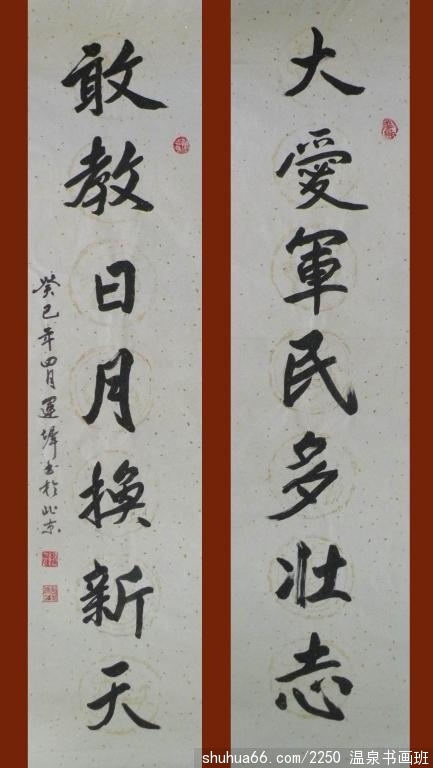 大愛軍民多壯志
敢教日月換新天
癸巳年四月運墀书於北京
shuhua66.com/2250 温泉书画班